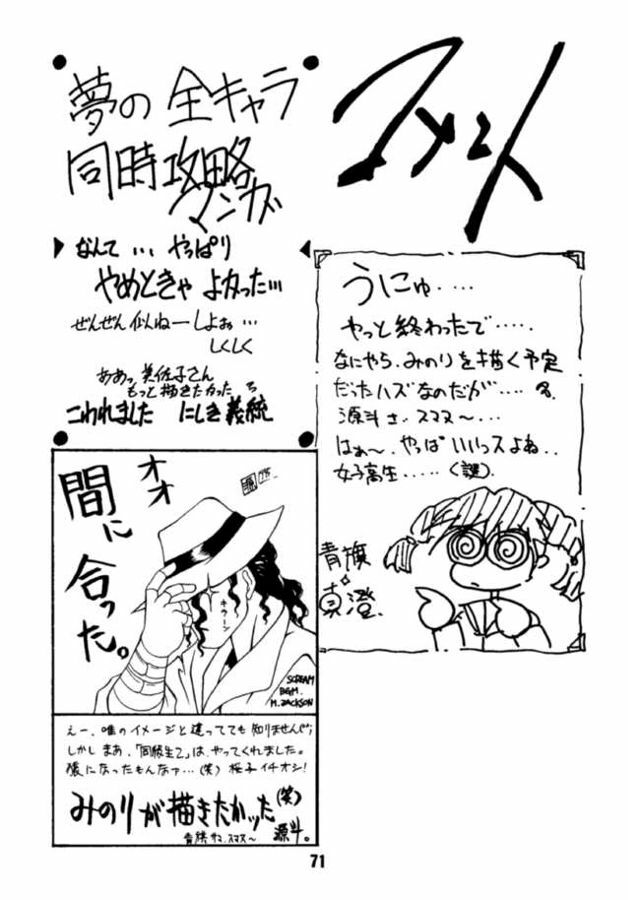 コメント
夢の 全キャラ
同時攻略
マンガ
なんて … やっぱり
やめときゃ よかった…
ぜんぜん似ねーしよぉ …
しくしく
ああっ 美佐子さん
もっと描きたかった
こわれました にしき義統
うにゅ‥‥
やっと終わったで‥‥‥
なにやら、みのりを描く予定
だったハズなのだが‥‥
源斗さ、スマヌ〜…
はぁ〜、やっぱいいっスよね‥
女子高生‥‥‥(謎)
青旗
真澄.
オオ
間に
合った。
キラーン
SCREAM
BGM.
M. JACKSON
えー、唯のイメージと違ってても知りませんぜ;
しかしまあ、「同級生2」は、やってくれました。
様になったもんなァ…(笑)桜子イチオシ!
みのりが描きたかッた(笑)
青旗サマ、スマヌ〜
源斗。
71